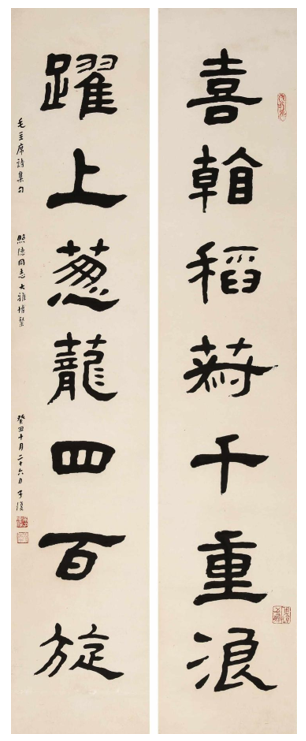 喜看稻菽千重浪
躍上葱蘢四百旋
毛主席詩集句
同志大雅
癸丑十月二十六日